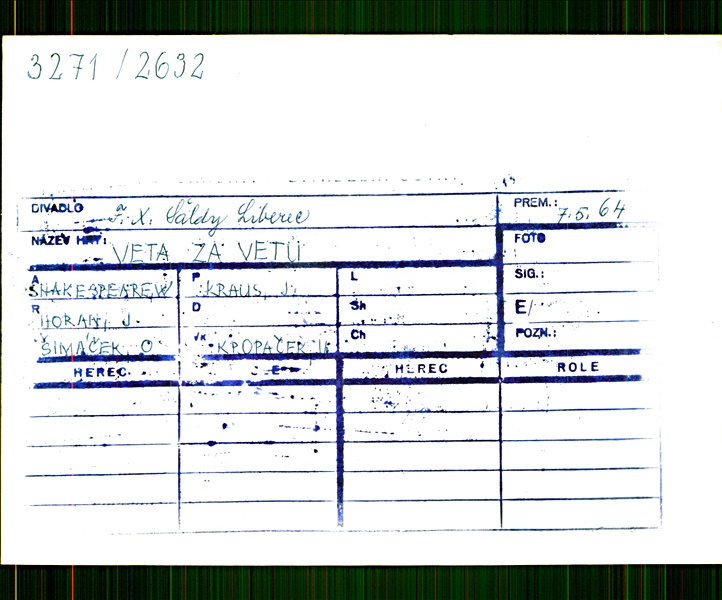 3271 / 2632
DIVADLO F. X. Šaldy Liberec PREM.: 7.5.64
NÁZEV HRY: VETA ZA VETU FOTO
A SHAKESPEARE W P KRAUS, J. L SIG.:
R HORAN, J. D Sh E/
ŠIMÁČEK, O VK KROPÁČEK Ch POZN.:
HEREC HEREC ROLE